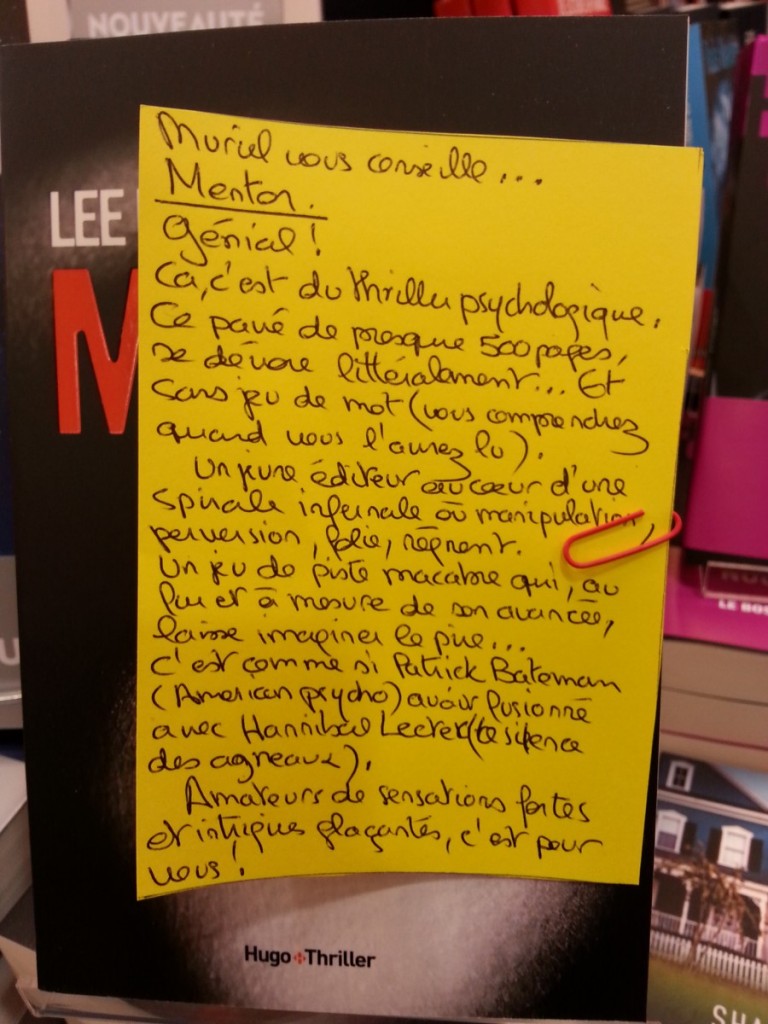 NOUVEAUTÉ
LEE
M
Muriel vous conseille...
Mentor.
Génial!
Ca, c'est du thriller psychologique.
Ce pavé de presque 500 pages,
se dévore littéralement... Et
sans jeu de mot (vous comprendrez
quand vous l'aurez lu).
Un jeune éditeur au cœur d'une
spirale infernale où manipulation,
perversion, folie, règnent.
Un jeu de piste macabre qui, au
fur et à mesure de son avancée,
laisse imaginer le pire...
C'est comme si Patrick Bateman
(American psycho) avait fusionné
avec Hannibal Lecter (le silence
des agneaux).
Amateurs de sensations fortes
et intrigues glaçantés, c'est pour
vous!
Hugo Thriller
LE BOS
SHA